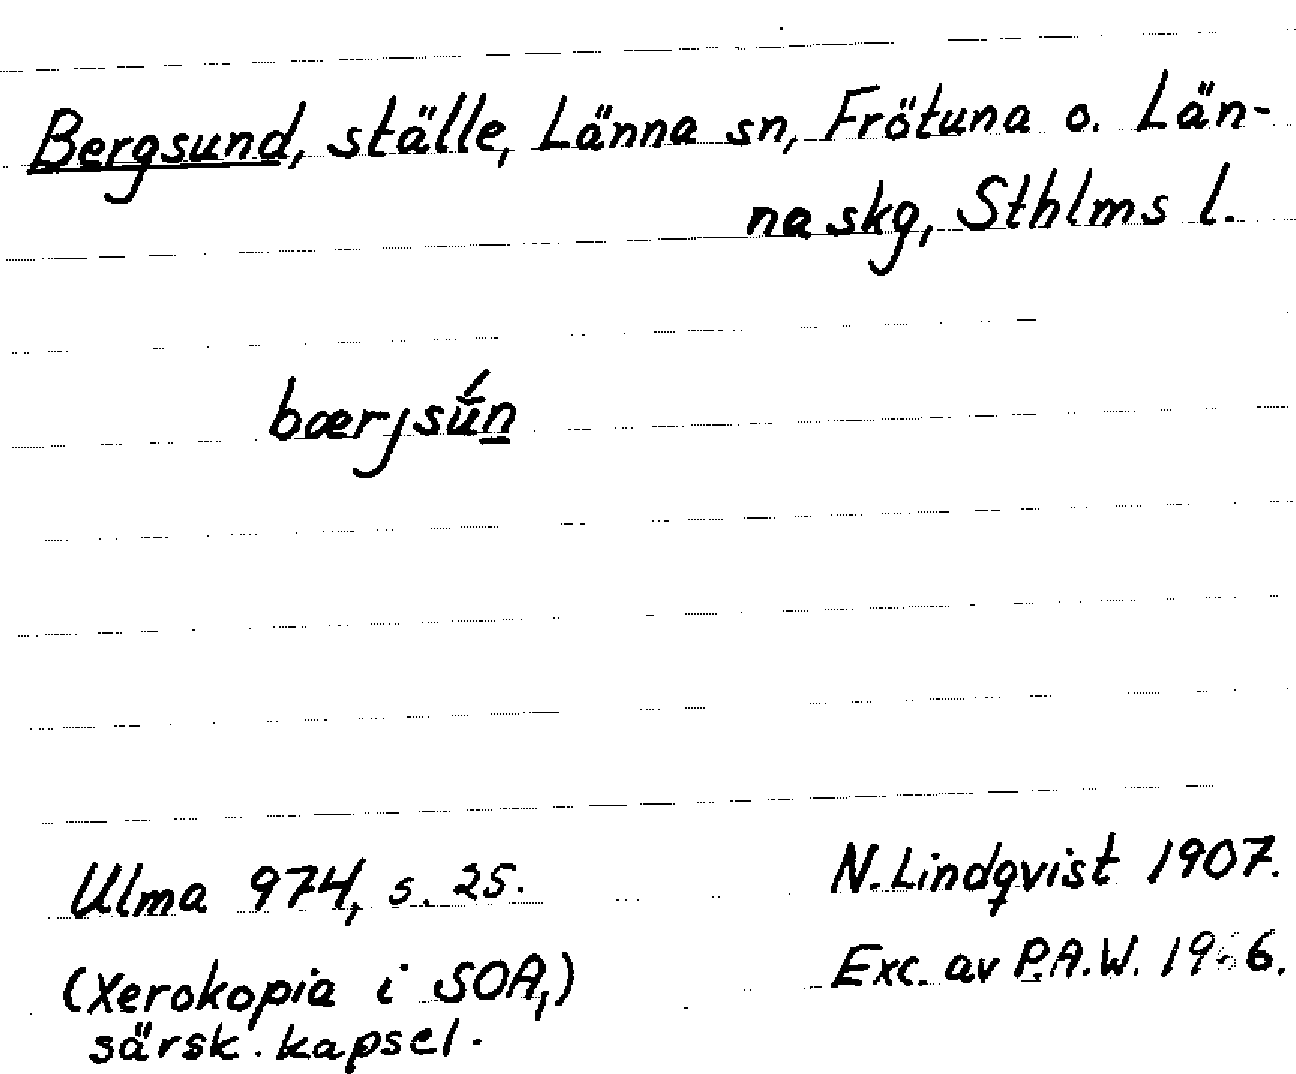 Bergsund, ställe, Länna sn, Frötuna o. Län-
na skg, Sthlms l.
bærjsún
Ulma 974, s. 25.
N. Lindqvist 1907.
(Xerokopia i SOA,)
särsk. kapsel.
Exc. av P.A.W. 1966.